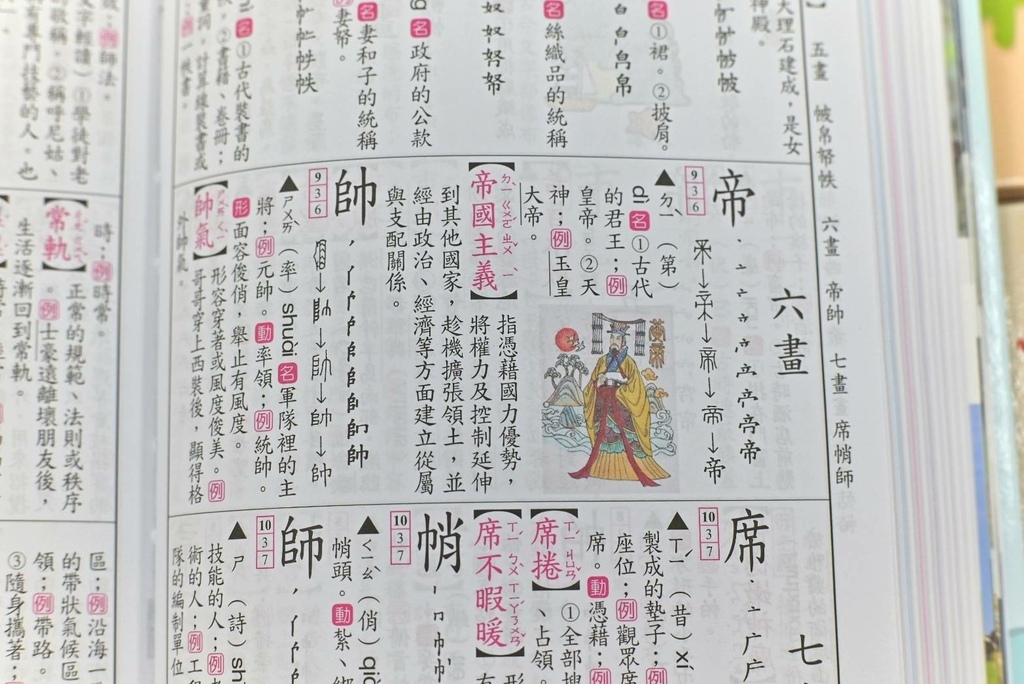 五畫 帔帛帑帙 六畫 帝帥 七畫 席帩師
大理石建成,是女
神殿。
名①裙。②披肩。
名絲織品的統稱
名政府的公款
名妻和子的統稱
妻帑。
名①古代裝書的
②書籍、卷冊;
計算線裝書或
例一帙書。
六畫
帝
936
▲ㄉㄧˋ(第)
dì名①古代
的君王;例
皇帝。②天
神;例玉皇
大帝。
【帝國主義】
指憑藉國力優勢,
將權力及控制延伸
到其他國家,趁機擴張領土,並
經由政治、經濟等方面建立從屬
與支配關係。
帥
936
▲ㄕㄨㄞˋ(率)shuài名軍隊裡的主
將;例元帥。動率領;例統帥。
形面容俊俏,舉止有風度。
【帥氣】形容穿著或風度俊美。例
哥哥穿上西裝後,顯得格
外帥氣。
七
席
1037
▲ㄒㄧˊ(昔)xí
製成的墊子;例
座位;例觀眾席
席。動憑藉;例
【席捲】①全部
、占領。
【席不暇暖】
帩
1037
▲ㄑㄧㄠˋ(俏)qiào
帩頭。動紮、綁
師
1037
▲ㄕ(詩)sh
技能的人;例
術的人;例工
隊的編制單位
例師法。
①學徒對老
②稱呼尼姑、
有專門技藝的人。也
時;例時常。
【常軌】正常的規範、法則或秩序
。例士豪遠離壞朋友後,
生活逐漸回到常軌。
區;例沿海一
的帶狀氣候區
領;例帶路。
③隨身攜著;